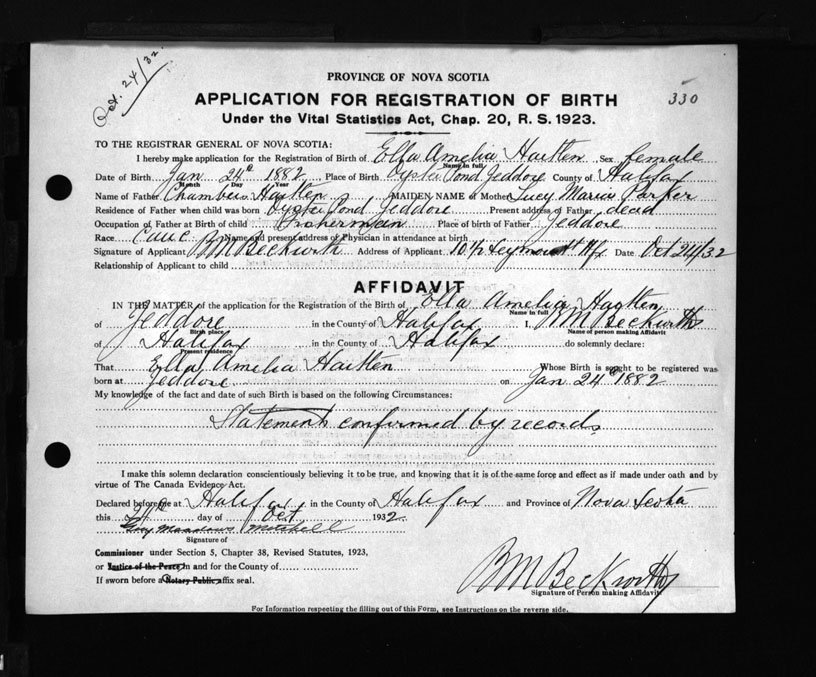 Oct. 24/32
PROVINCE OF NOVA SCOTIA
330
APPLICATION FOR REGISTRATION OF BIRTH
Under the Vital Statistics Act, Chap. 20, R. S. 1923.
TO THE REGISTRAR GENERAL OF NOVA SCOTIA:
I hereby make application for the Registration of Birth of Ella Amelia Hartlen Sex female
Name in full
Date of Birth Jan 24th 1882 Place of Birth Oyster Pond Jeddore County of Halifax
Month Day Year
Name of Father Chambers Hartlen MAIDEN NAME of Mother Lucy Maria Parker
Residence of Father when child was born Oyster Pond Jeddore Present address of Father dead
Occupation of Father at Birth of child Fisherman Place of birth of Father Jeddore
Race Name and present address of Physician in attendance at birth
Signature of Applicant BM Beckwith Address of Applicant 10½ Seymour St Hfx Date Oct 24/32
Relationship of Applicant to child
AFFIDAVIT
IN THE MATTER of the application for the Registration of the Birth of Ella Amelia Hartlen
Name in full
of Jeddore in the County of Halifax I, BM Beckwith
Birth place Name of person making Affidavit
of Halifax in the County of Halifax do solemnly declare:
Present residence
That Ella Amelia Hartlen Whose Birth is sought to be registered was
born at Jeddore on Jan 24th 1882
My knowledge of the fact and date of such Birth is based on the following Circumstances:
Statements confirmed by records
I make this solemn declaration conscientiously believing it to be true, and knowing that it is of the same force and effect as if made under oath and by
virtue of The Canada Evidence Act.
Declared before me at Halifax in the County of Halifax and Province of Nova Scotia
this 24th day of Oct 1932
Mitchell
Signature of
Commissioner under Section 5, Chapter 38, Revised Statutes, 1923,
or Justice of the Peace in and for the County of
If sworn before a Notary Public affix seal.
BM Beckwith
Signature of Person making Affidavit
For Information respecting the filling out of this Form, see Instructions on the reverse side.